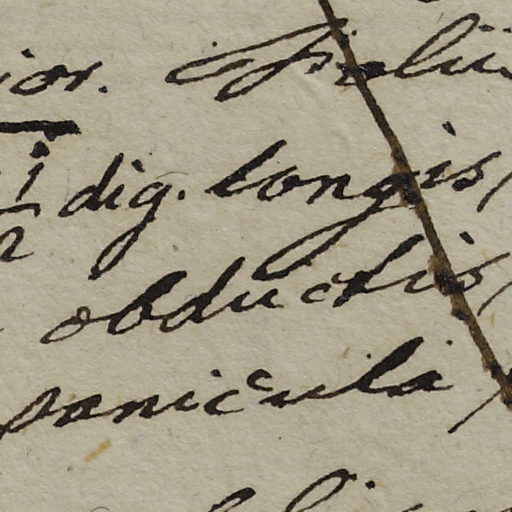 ior. Spolii
dig. longis,
obductis,
panicula,